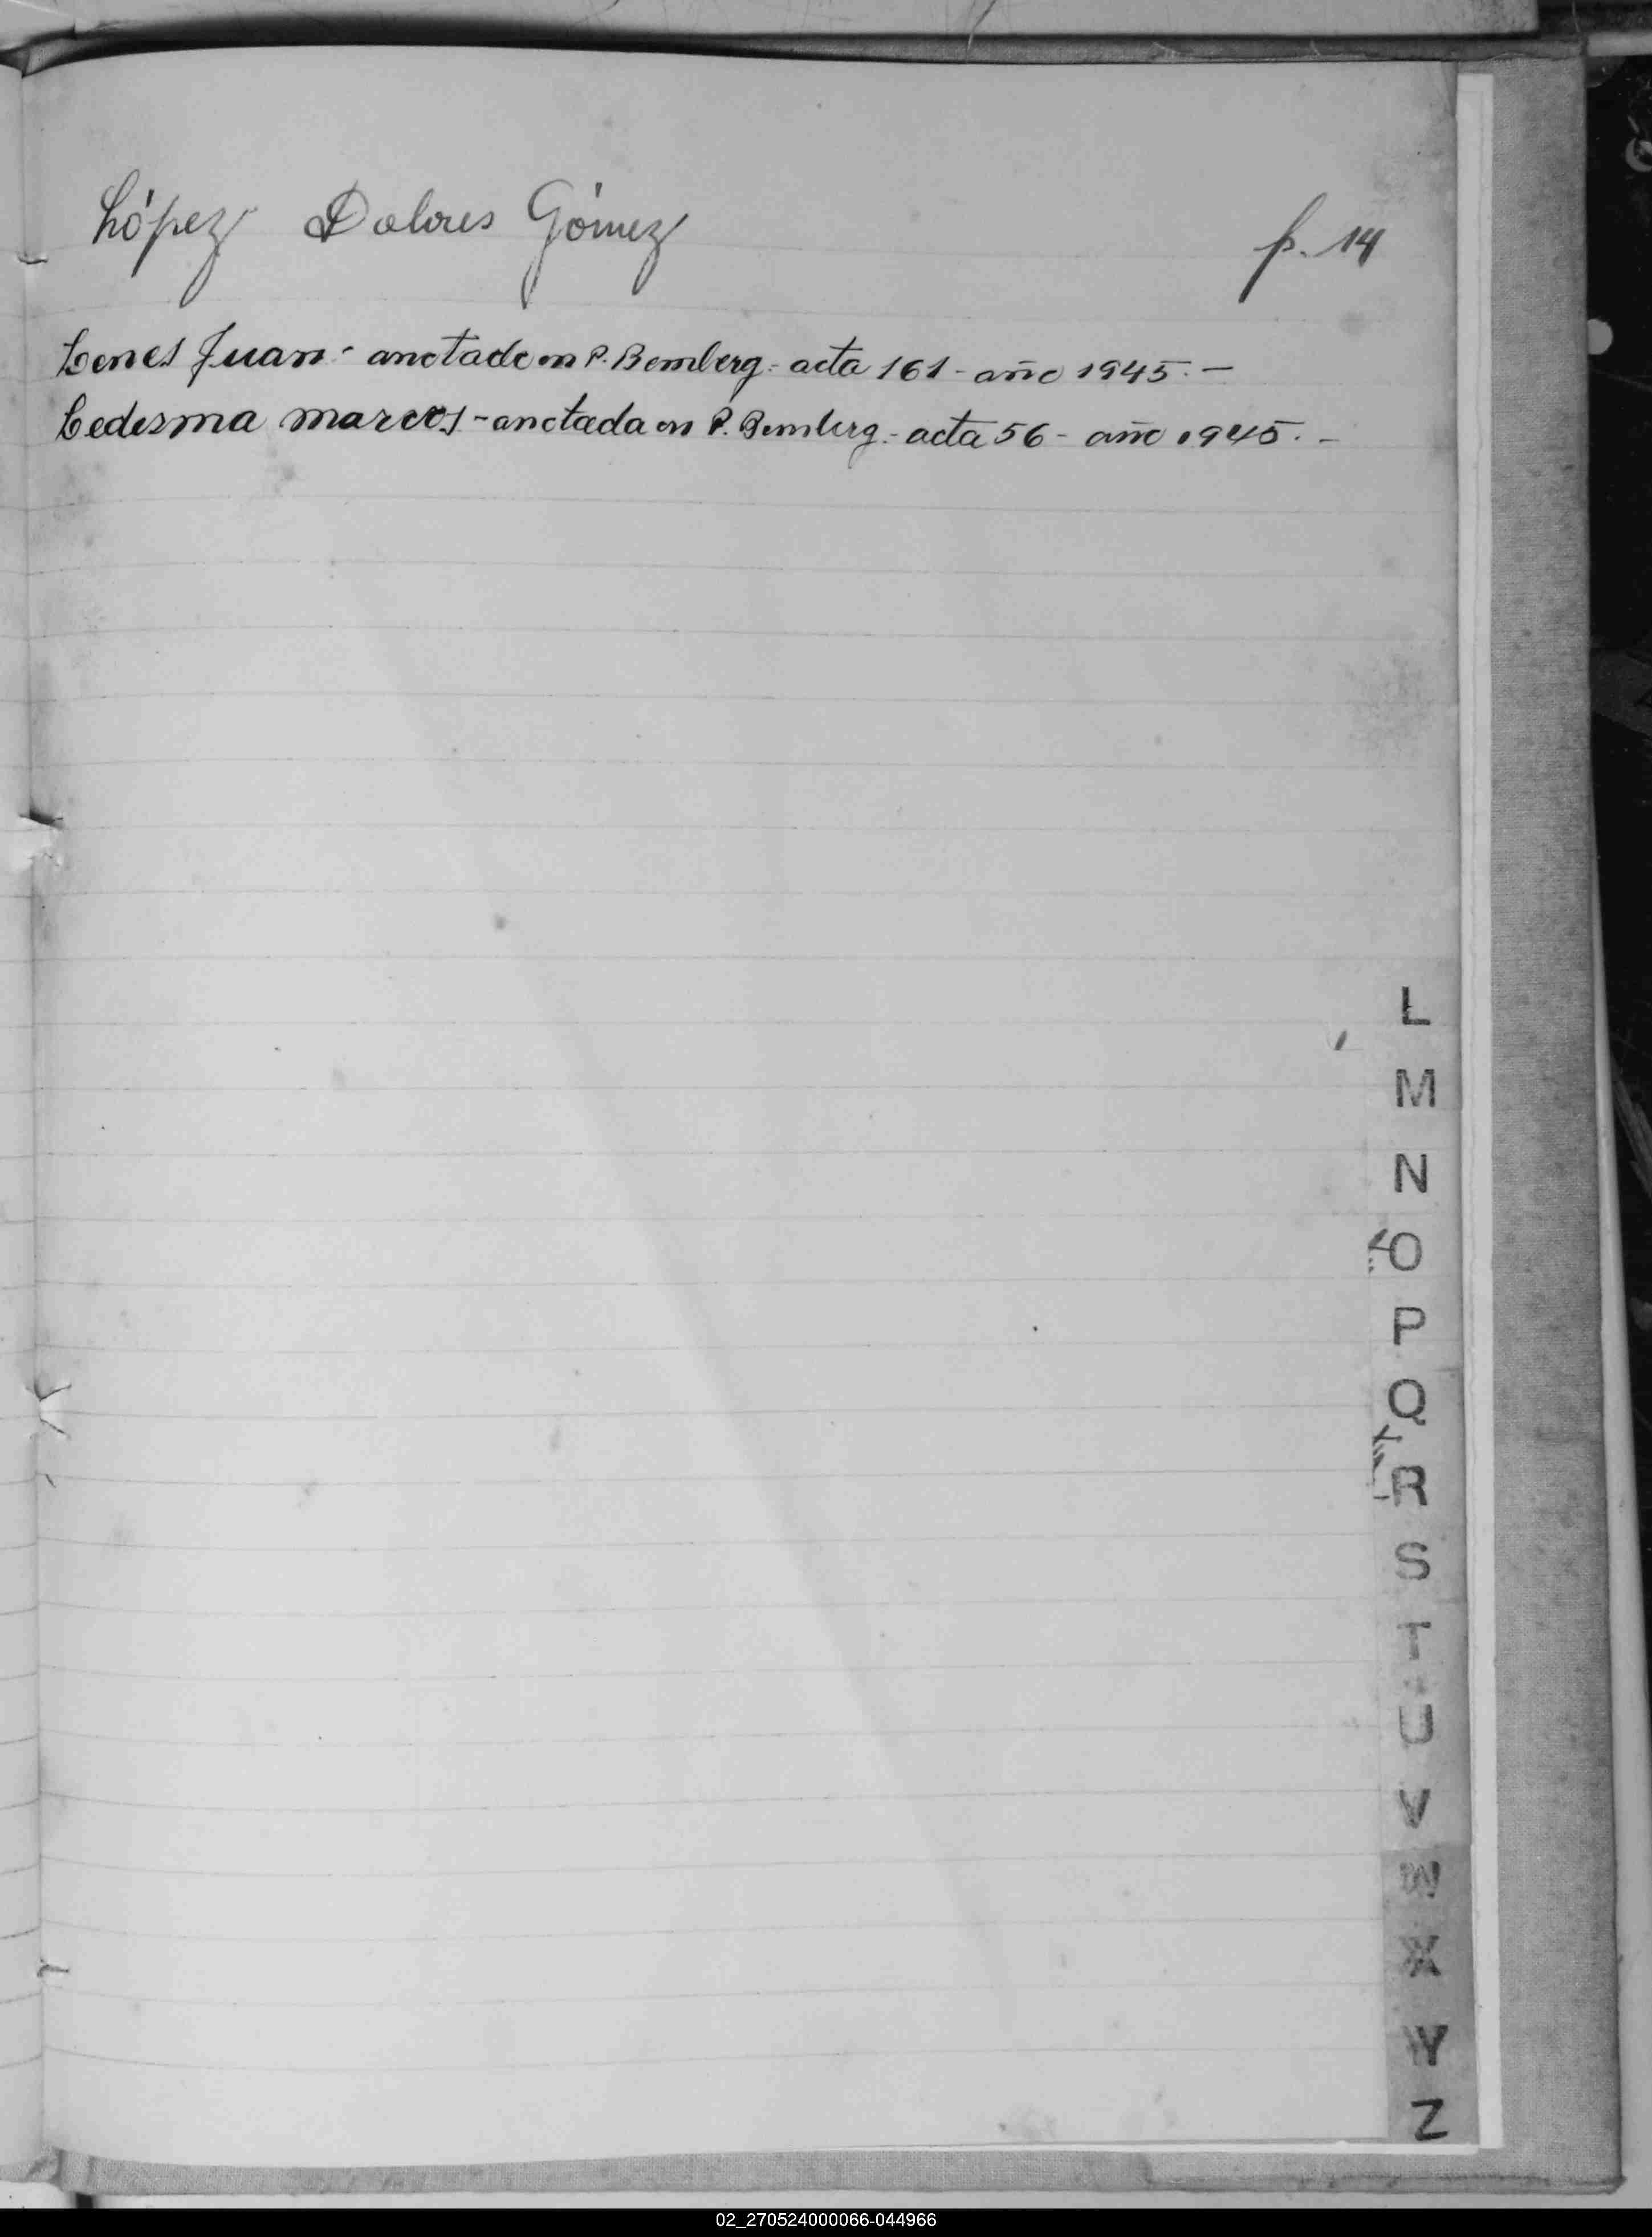 López Dolores Gómez p. 14
Lenes Juan - anotado en P. Bemberg - acta 161 - año 1945. -
Ledesma Marcos - anotada en P. Bemberg. - acta 56 - año 1945. -
L
M
N
O
P
Q
R
S
T
U
V
W
X
Y
Z
02_270524000066-044966